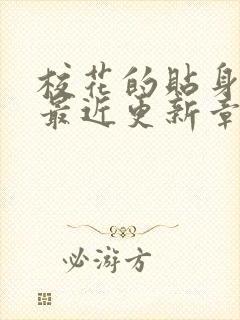 校花的貼身
最近更新章
必游方